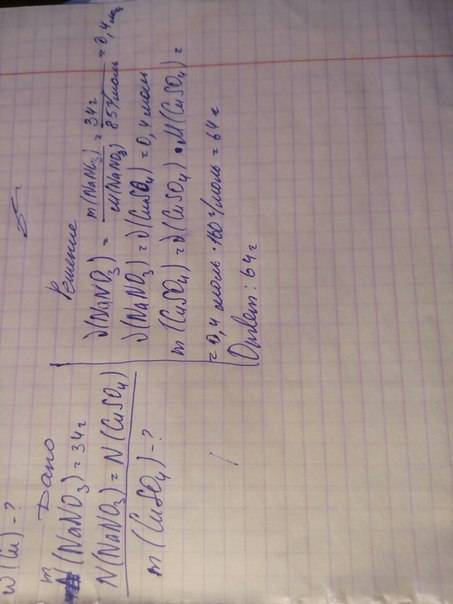 W(Cu) - ?
Дано
m(NaNO₃) = 34г
N(NaNO₃) = N(CuSO₄)
m(CuSO₄) - ?
Решение
ν(NaNO₃) = m(NaNO₃) / M(NaNO₃) = 34г / 85г/моль = 0,4 моль
ν(NaNO₃) = ν(CuSO₄) = 0,4 моль
m(CuSO₄) = ν(CuSO₄) • M(CuSO₄) =
= 0,4 моль · 160г/моль = 64г
Ответ: 64г